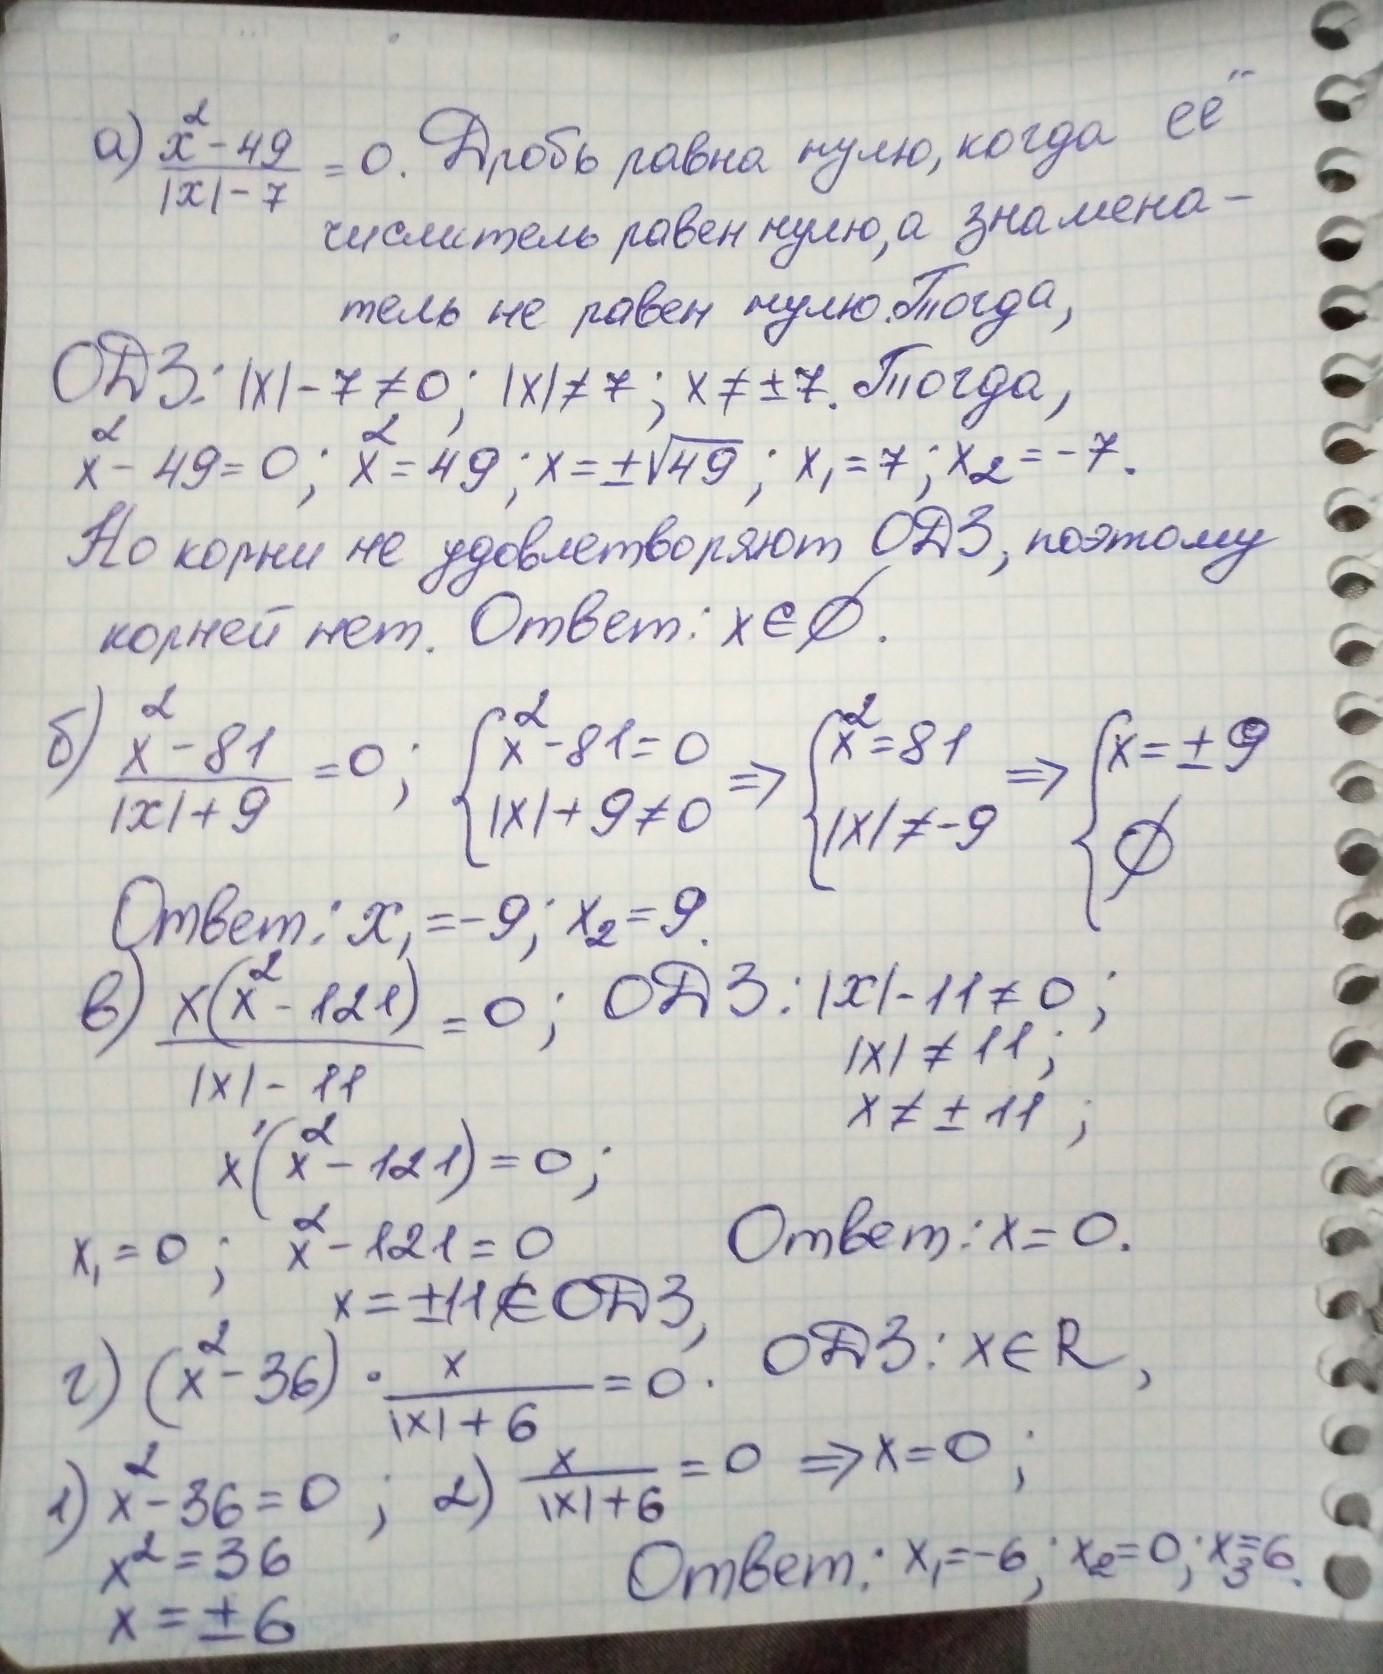 а) (x² - 49)/(|x| - 7) = 0. Дробь равна нулю, когда её
числитель равен нулю, а знамена-
тель не равен нулю. Тогда,
ОДЗ: |x| - 7 ≠ 0; |x| ≠ 7; x ≠ ±7. Тогда,
x² - 49 = 0; x² = 49; x = ±√49; x₁ = 7; x₂ = -7.
Но корни не удовлетворяют ОДЗ, поэтому
корней нет. Ответ: x ∈ ∅.
б) (x² - 81)/(|x| + 9) = 0; { x² - 81 = 0 |x| + 9 ≠ 0 ⇒ { x² = 81 |x| ≠ -9 ⇒ { x = ±9 ∅
Ответ: x₁ = -9; x₂ = 9.
в) x(x² - 121)/(|x| - 11) = 0; ОДЗ: |x| - 11 ≠ 0;
|x| ≠ 11;
x ≠ ±11;
x(x² - 121) = 0;
x₁ = 0; x² - 121 = 0 Ответ: x = 0.
x = ±11 ∉ ОДЗ,
г) (x² - 36) · x/(|x| + 6) = 0. ОДЗ: x ∈ R,
1) x² - 36 = 0; 2) x/(|x| + 6) = 0 ⇒ x = 0;
x² = 36
x = ±6
Ответ: x₁ = -6; x₂ = 0; x₃ = 6.